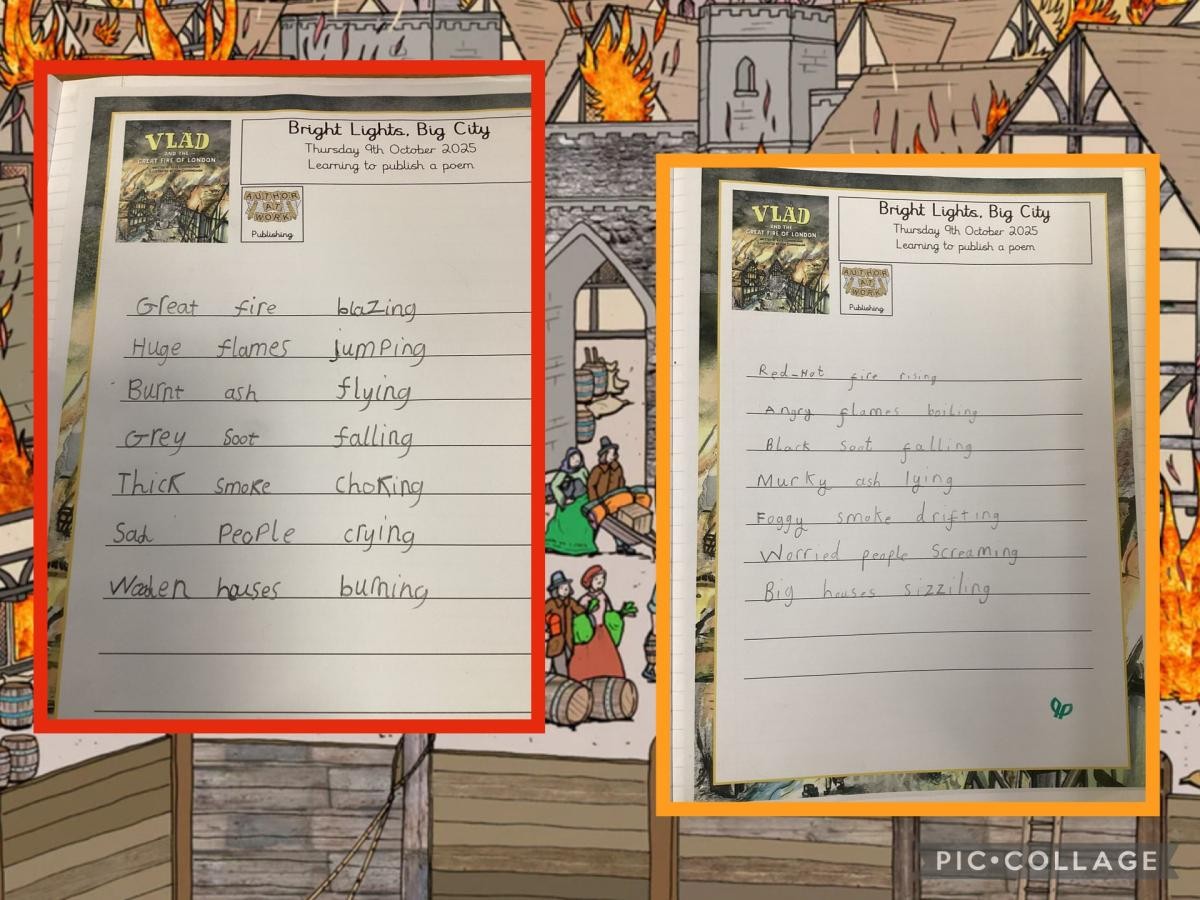 VLAD
AND THE
GREAT FIRE OF LONDON
Bright Lights, Big City
Thursday 9th October 2025
Learning to publish a poem
AUTHOR
AT
WORK
Publishing
Great fire blazing
Huge flames jumping
Burnt ash flying
Grey soot falling
Thick smoke choking
Sad people crying
Wooden houses burning
VLAD
AND THE
GREAT FIRE OF LONDON
Bright Lights, Big City
Thursday 9th October 2025
Learning to publish a poem
AUTHOR
AT
WORK
Publishing
Red-Hot fire rising
Angry flames boiling
Black soot falling
Murky ash lying
Foggy smoke drifting
Worried people Screaming
Big houses sizziling
PIC•COLLAGE